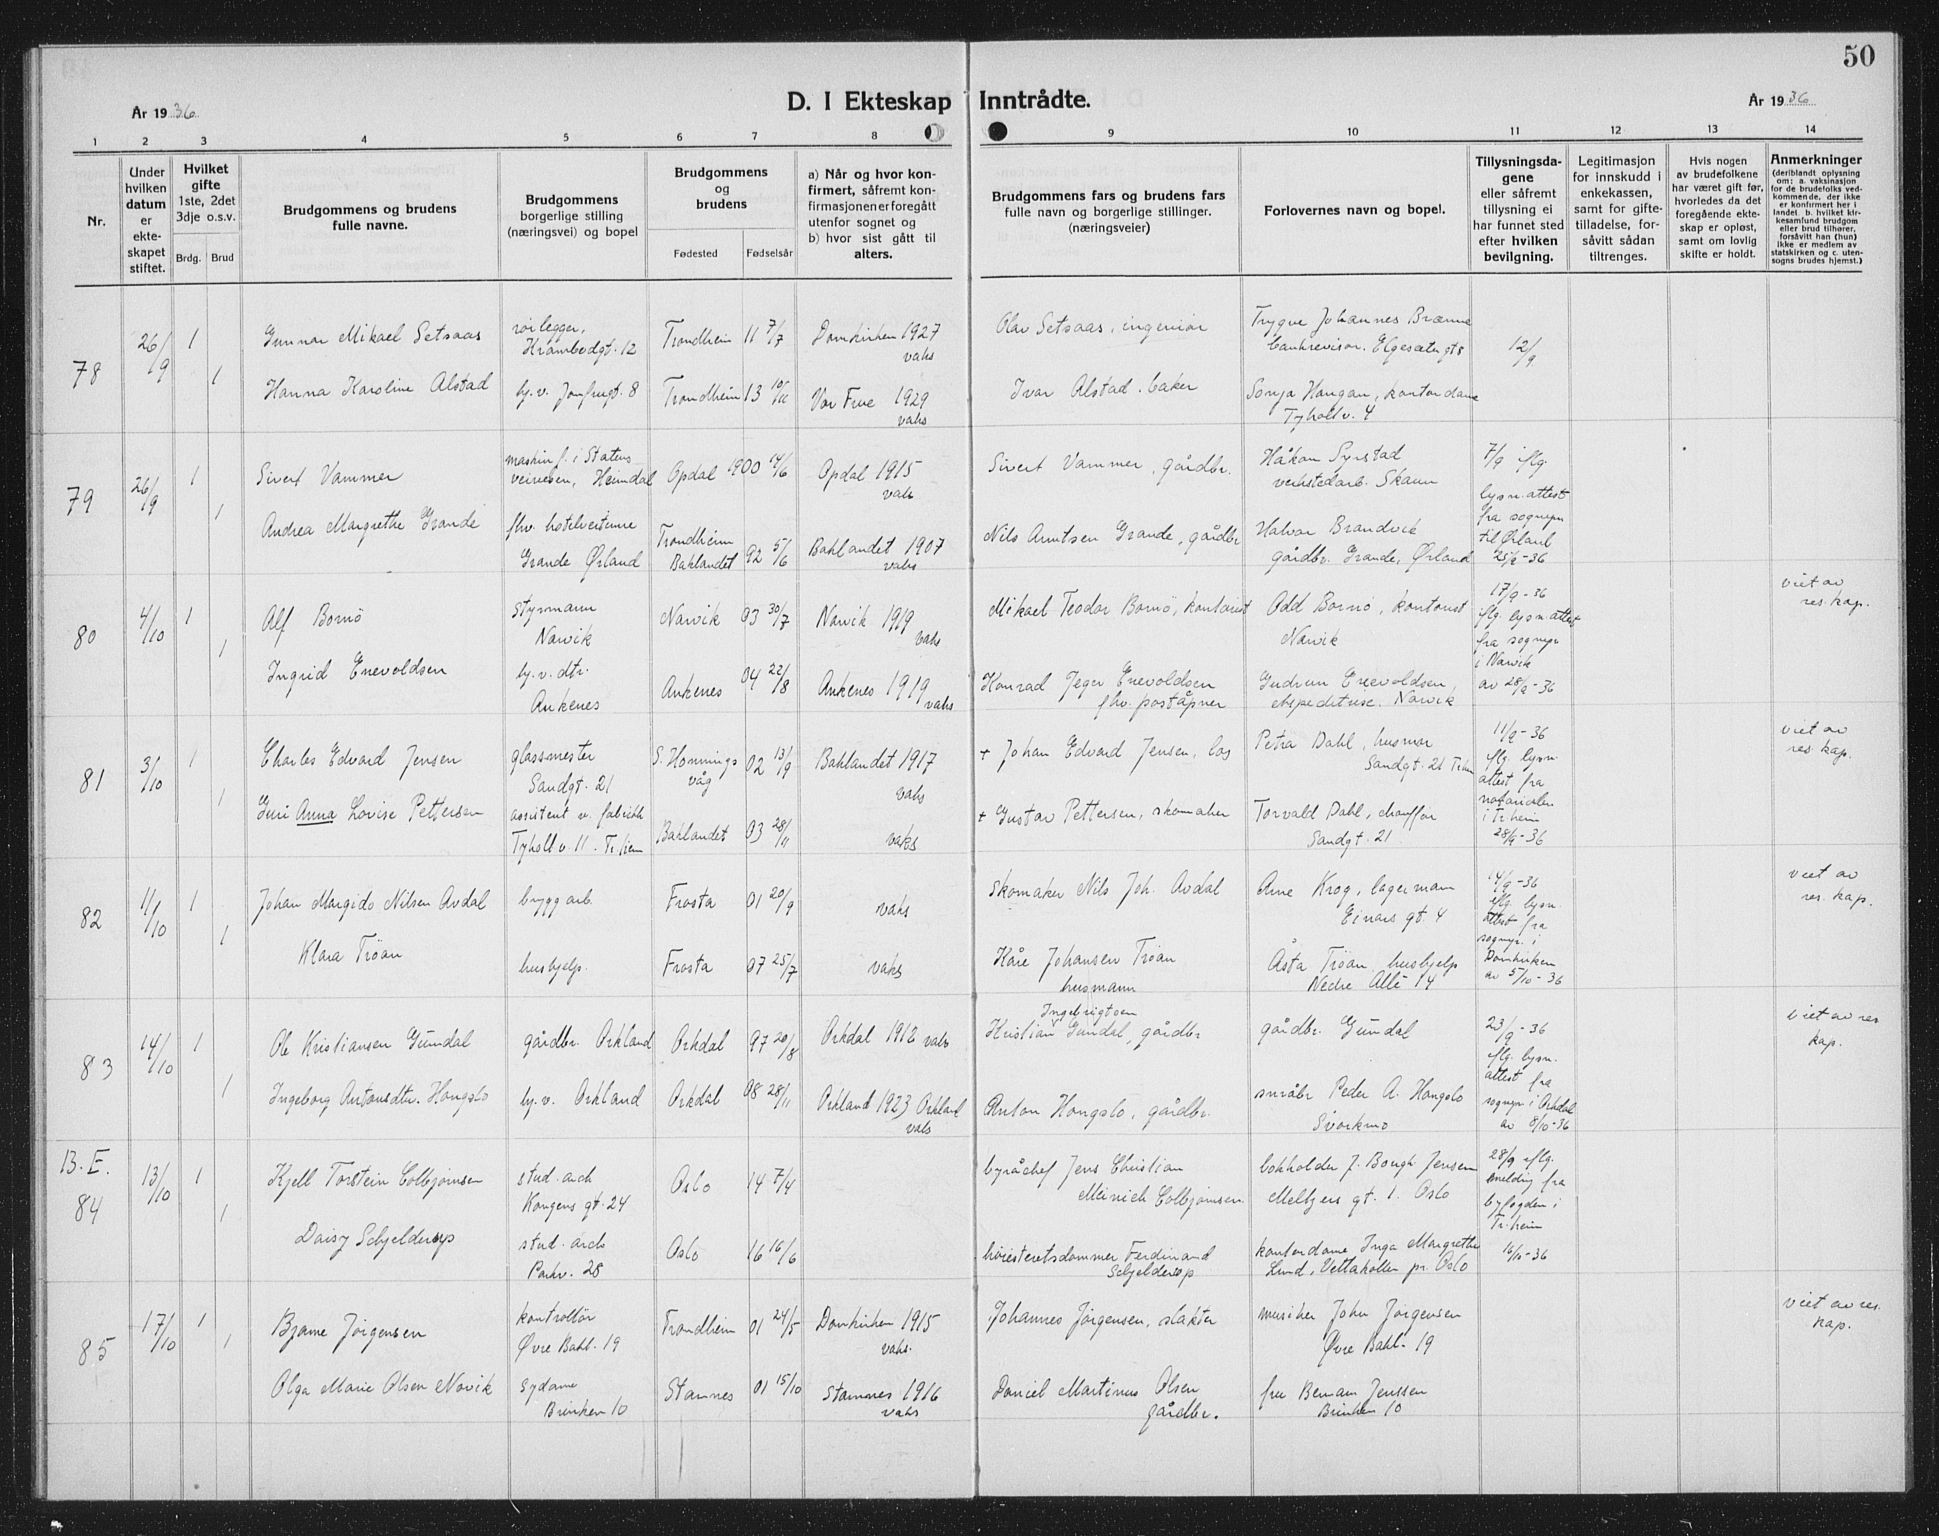 50
D. I Ekteskap Inntrådte.
År 1936
År 1936
1 2 3 4 5 6 7 8 9 10 11 12 13 14
Nr.
Under hvilken datum er ekteskapet stiftet.
Hvilket gifte 1ste, 2det 3dje o.s.v.
Brdg. Brud
Brudgommens og brudens fulle navne.
Brudgommens borgerlige stilling (næringsvei) og bopel
Brudgommens og brudens
Fødested Fødselsår
a) Når og hvor konfirmert, såfremt konfirmasjonen er foregått utenfor sognet og
b) hvor sist gått til alters.
Brudgommens fars og brudens fars fulle navn og borgerlige stillinger. (næringsveier)
Forlovernes navn og bopel.
Tillysningsdagene eller såfremt tillysning ei har funnet sted efter hvilken bevilgning.
Legitimasjon for innskudd i enkekassen, samt for giftetilladelse, forsåvitt sådan tiltrenges.
Hvis nogen av brudefolkene har været gift før, hvorledes da det foregående ekteskap er opløst, samt om lovlig skifte er holdt.
Anmerkninger (deriblandt oplysning om: a. vaksinasjon for de brudefolks vedkommende, der ikke er konfirmert her i landet b. hvilket kirkesamfund brudgom eller brud tilhører, forsåvitt han (hun) ikke er medlem av statskirken og c. utensogns brudes hjemst.)
78 26/9 1 Gunnar Mikael Setsaas rørlegger, Trondheim 11 7/7 Domkirken 1927 Olav Setsaas, ingeniør Trygve Johannes Brænne 12/9
Krambodgt. 12 vaks bankrevisor. Elgesætergt 8
1 Hanna Karoline Alstad hj.v. Jomfrugt. 8 Trondheim 13 Vor Frue 1929 Ivar Alstad. baker Sonja Haugan, kontordame
vaks Tyholtv. 4
79 26/9 1 Sivert Vammer maskinf. i Statens Opdal 1900 Opdal 1915 Sivert Vammer, gårdbr. Håkon Syrstad 7/9 iflg.
veivesen, Heimdal vaks verkstedarb. Skaun lysn.attest
1 Andrea Margrethe Grande fhv. hotelvertinne Trondheim Baklandet 92 5/6 Baklandet 1907 Nils Arntsen Grande, gårdbr Halvor Brandvik fra sognepr
Grande Ørland vaks gårdbr. Grande, Ørland til Ørland
25/9-36
80 4/10 1 Alf Bornø styrmann Narvik 03 30/7 Narvik 1919 Mikael Teodor Bornø, kontorist Odd Bornø, kontorist 17/9-36 viet av
Narvik vaks Narvik iflg. lysn.attest res.kap.
fra sognepr
i Narvik
1 Ingrid Enevoldsen hj.v. dtr. Ankenes 04 22/8 Ankenes 1919 Konrad Jeger Enevoldsen Gudrun Enevoldsen, av 28/9-36
Ankenes vaks fhv. poståpner ekspeditrise. Narvik
81 3/10 1 Charles Edvard Jensen glassmester S. Honningsvåg 02 13/9 Baklandet 1917 + Johan Edvard Jensen, los Petra Dahl, husmor 11/9-36 viet av
Sandgt. 21 vaks Sandgt. 21 Tr.hm iflg. lysn. res. kap.
attest fra
notarialen
1 Guri Anna Lovise Pettersen assistent v. fabrikk Baklandet 03 28/11 vaks + Gustav Pettersen, skomaker Torvald Dahl, chauffør i Tr.heim
Tyholtv. 11. Tr.heim Sandgt. 21 28/9-36
82 1/10 1 Johan Margido Nilsen Avdal bryggarb. Frosta 01 20/9 vaks Skomaker Nils Joh. Avdal Arne Krog, lagermann 14/9-36 viet av
Einars gt. 4 iflg. lysn. res. kap.
attest fra
sognepr. i
1 Klara Trøan hushjelp. Frosta 07 25/7 vaks Kåre Johansen Trøan Åsta Trøan, hushjelp Domkirken
husmann Nedre Allé 14 av 5/10-36
83 14/10 1 Ole Kristiansen Gumdal gårdbr. Orkland Orkdal 97 20/8 Orkdal 1912 vaks Kristian Ingebrigtsen Gumdal, gårdbr gårdbr. Gumdal 23/9-36 viet av res
iflg. lysn. kap.
attest fra
1 Ingeborg Antonsdtr. Hongslo hj.v. Orkland Orkdal 08 28/11 Orkland 1923 Orkland Anton Hongslo, gårdbr. småbr Peder A. Hongslo sognepr i Orkdal
vaks Svorkmo av 8/10-36
B.E.
84 13/10 1 Kjell Torstein Colbjørnsen stud. arch Oslo 14 7/4 byråchef Jens Christian bokholder J. Bough Jensen 28/9 iflg.
Kongens gt. 24 Meinich Colbjørnsen. Meltzers gt. 1. Oslo melding fra
byfogden i
Tr.heim
1 Daisy Schjelderup stud. arch Oslo 16 16/6 høiesteretsdommer Ferdinand kontordame Inga Margrethe 16/10-36
Parkv. 28 Schjelderup Lund, Vettakollen pr. Oslo
85 17/10 1 Bjarne Jørgensen kontrollør Trondheim 01 24/5 Domkirken 1915 Johannes Jørgensen, slakter musiker John Jørgensen viet av res.
Øvre Bakl. 19 vaks. Øvre Bakl. 19 kap.
1 Olga Marie Olsen Novik sydame Stamnes 01 15/10 Stamnes 1916 Daniel Martinus Olsen fru Bernam Jenssen
Brinken 10 vaks gårdbr. Brinken 10